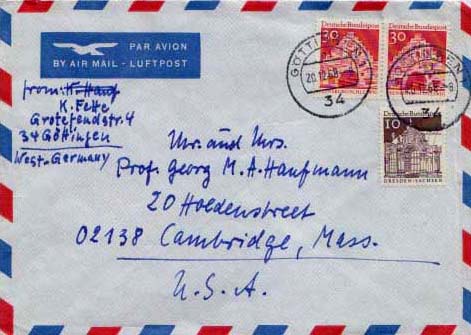 PAR AVION
BY AIR MAIL - LUFTPOST
from: K. Hanf
K. Fette
Grotefendstr. 4
34 Göttingen
West-Germany
Mr. and Mrs.
Prof. Georg M. A. Hanfmann
20 Holdenstreet
02138 Cambridge, Mass.
U.S.A.
30 Deutsche Bundespost
30 Deutsche Bundespost
Deutsche Bundespost
10
DRESDEN-SACHSEN
GÖTTINGEN
34
34